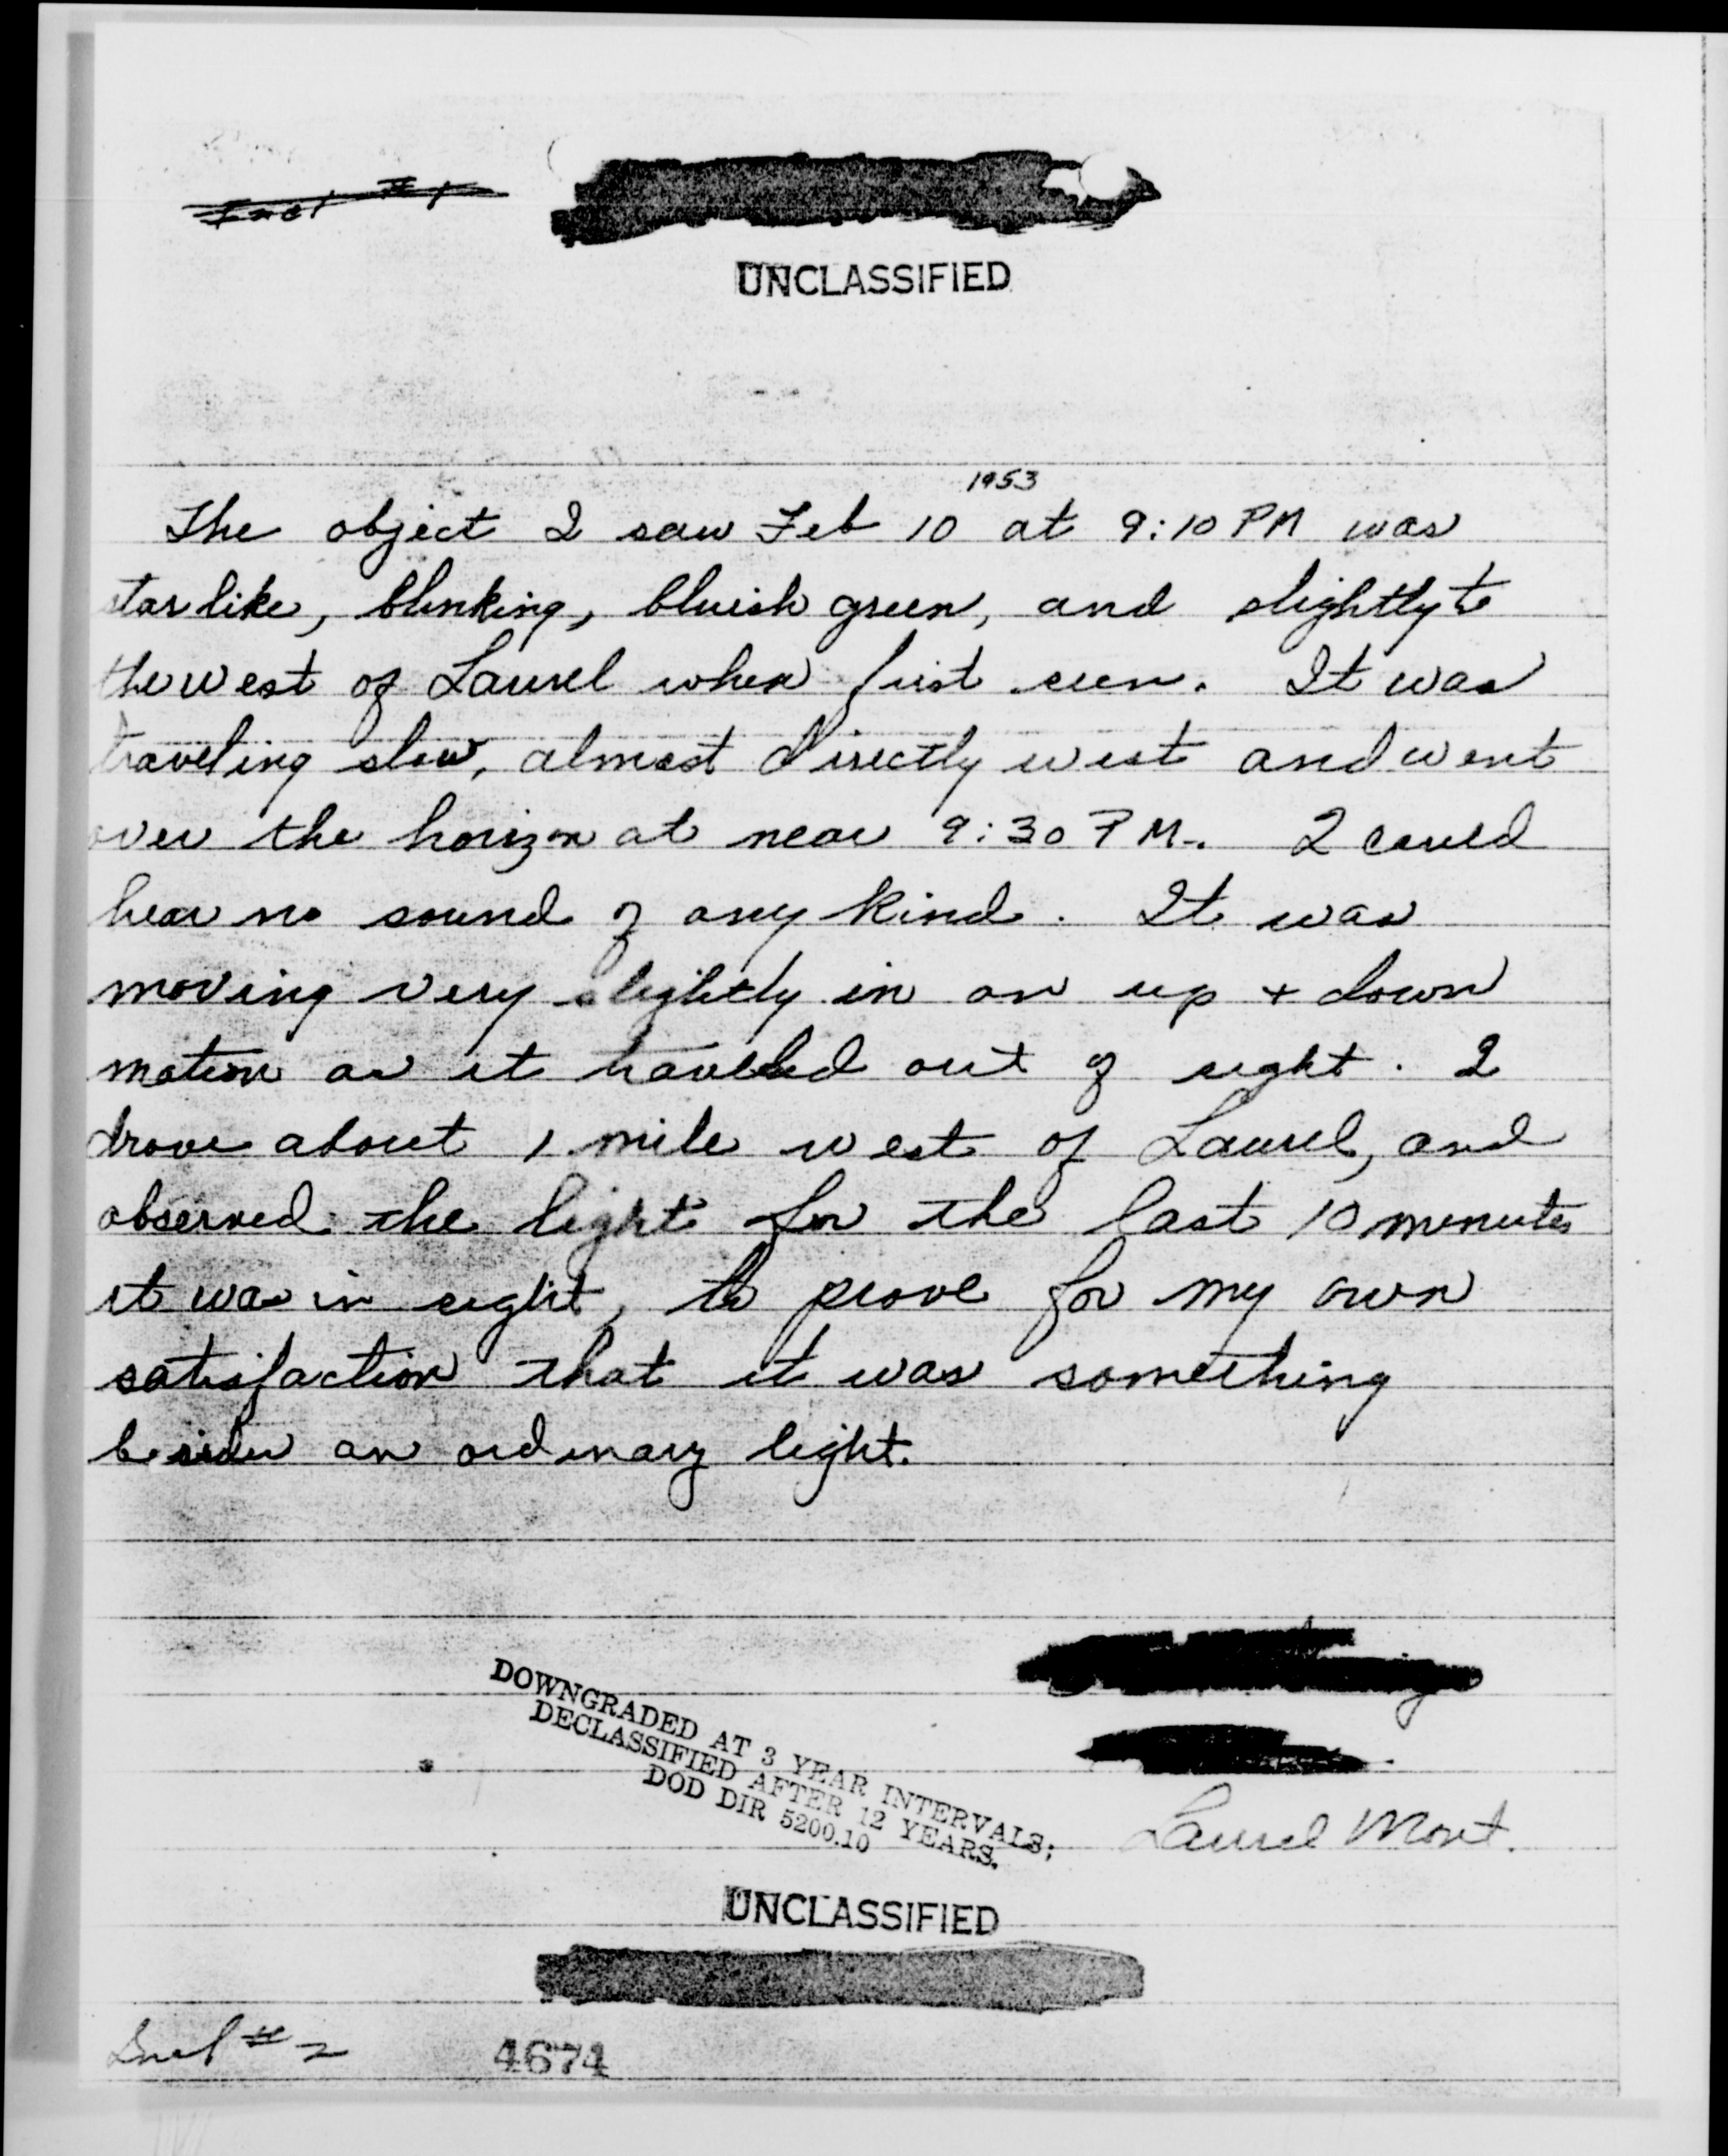 Incl #1
UNCLASSIFIED
1953
The object I saw Feb 10 at 9:10 PM was
starlike, blinking, bluish green, and slightly to
the west of Laurel when first seen. It was
traveling slow, almost directly west and went
over the horizon at near 9:30 PM. I could
hear no sound of any kind. It was
moving very slightly in an up + down
motion as it traveled out of sight. I
drove about 1 mile west of Laurel, and
observed the light for the last 10 minutes
it was in sight, to prove for my own
satisfaction that it was something
besides an ordinary light.
DOWNGRADED AT 3 YEAR INTERVALS;
DECLASSIFIED AFTER 12 YEARS.
DOD DIR 5200.10
Laurel Mont.
UNCLASSIFIED
Incl # 2
4674